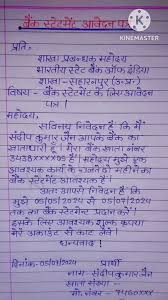 KINEMASTER
बैंक स्टेटमेंट आवेदन पत्र
प्रति,
शाखा प्रबन्धक महोदय
भारतीय स्टेट बैंक ऑफ इंडिया
शाखा-सहारनपुर (उ.प्र.)
विषय - बैंक स्टेटमेंट के लिए आवेदन
पत्र।
महोदय,
सविनय निवेदन है कि मैं
संदीप कुमार जैन आपके बैंक का
खाताधारी हूं। मेरा बैंक खाता नंबर
है। महोदय मुझे एक
आवश्यक कार्य के चलते दो महीने का
बैंक स्टेटमेंट की आवश्यकता है।
अतः आपसे निवेदन है कि
मुझे 05/05/2024 से 05/07/2024
तक का बैंक स्टेटमेंट प्रदान करें।
इसके लिए आवश्यक शुल्क कृपया
मेरे अकाउंट से काट लेवें।
धन्यवाद!
दिनांक-05/07/2024 प्रार्थी
नाम-संदीप कुमार जैन
खाता संख्या-